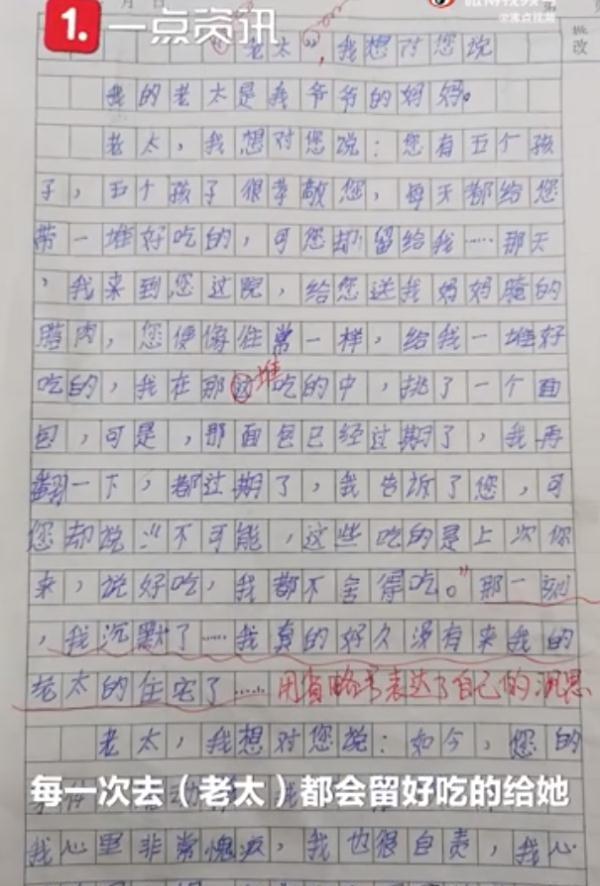 1. 一点资讯
@沸点视频
批改
“老太”，我想对您说
我的老太是我爷爷的妈妈。
老太，我想对您说：您有五个孩
子，五个孩子很孝敬您，每天都给您
带一堆好吃的，可您却留给我……那天
，我来到您这院，给您送我妈妈腌的
腊肉，您便像往常一样，给我一堆好
吃的，我在那堆吃的中，挑了一个面
包，可是，那面包已经过期了，我再
翻一下，都过期了，我告诉了您，可
您却说：“不可能，这些吃的是上次你
来，说好吃，我都不舍得吃。”那一刻
，我沉默了……我真的好久没有来我的
老太的住宅了…… 用省略号表达了自己的沉思
老太，我想对您说：如今，您的
每一次去（老太）都会留好吃的给她
我心里非常愧疚，我也很自责，我心